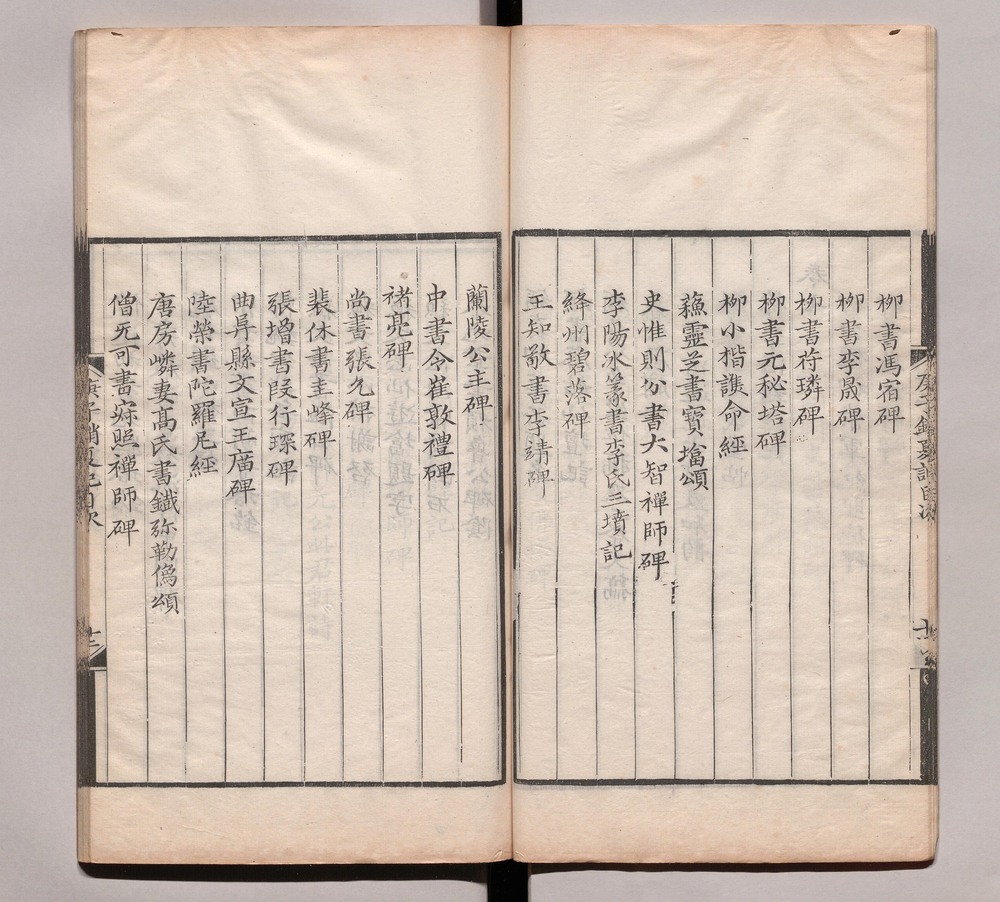 柳書馮宿碑
柳書李晟碑
柳書苻璘碑
柳書元秘塔碑
柳小楷護命經
蘓靈芝書寶墖頌
史惟則分書大智禪師碑
李陽冰篆書李氏三墳記
絳州碧落碑
王知敬書李靖碑
蘭陵公主碑
中書令崔敦禮碑
褚亮碑
尚書張允碑
裴休書圭峰碑
張增書段行琛碑
曲阜縣文宣王庿碑
陸榮書陀羅尼經
唐房嶙妻髙氏書鐵弥勒像頌
僧无可書寂照禪師碑
庚子銷夏記目次